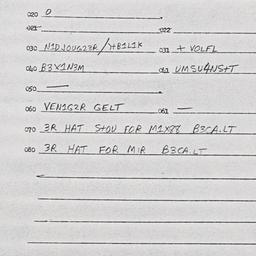 020 0
021 022
030 N1DJOUG23R/YB1L1X 031 + VOLFL
040 B3X1N3M 041 UMSU4NS+T
050 —
060 VEN1G2R GELT 061 —
070 3R HAT S+OU FOR M1X88 B3CA.LT
080 3R HAT FOR MIR B3CA.LT